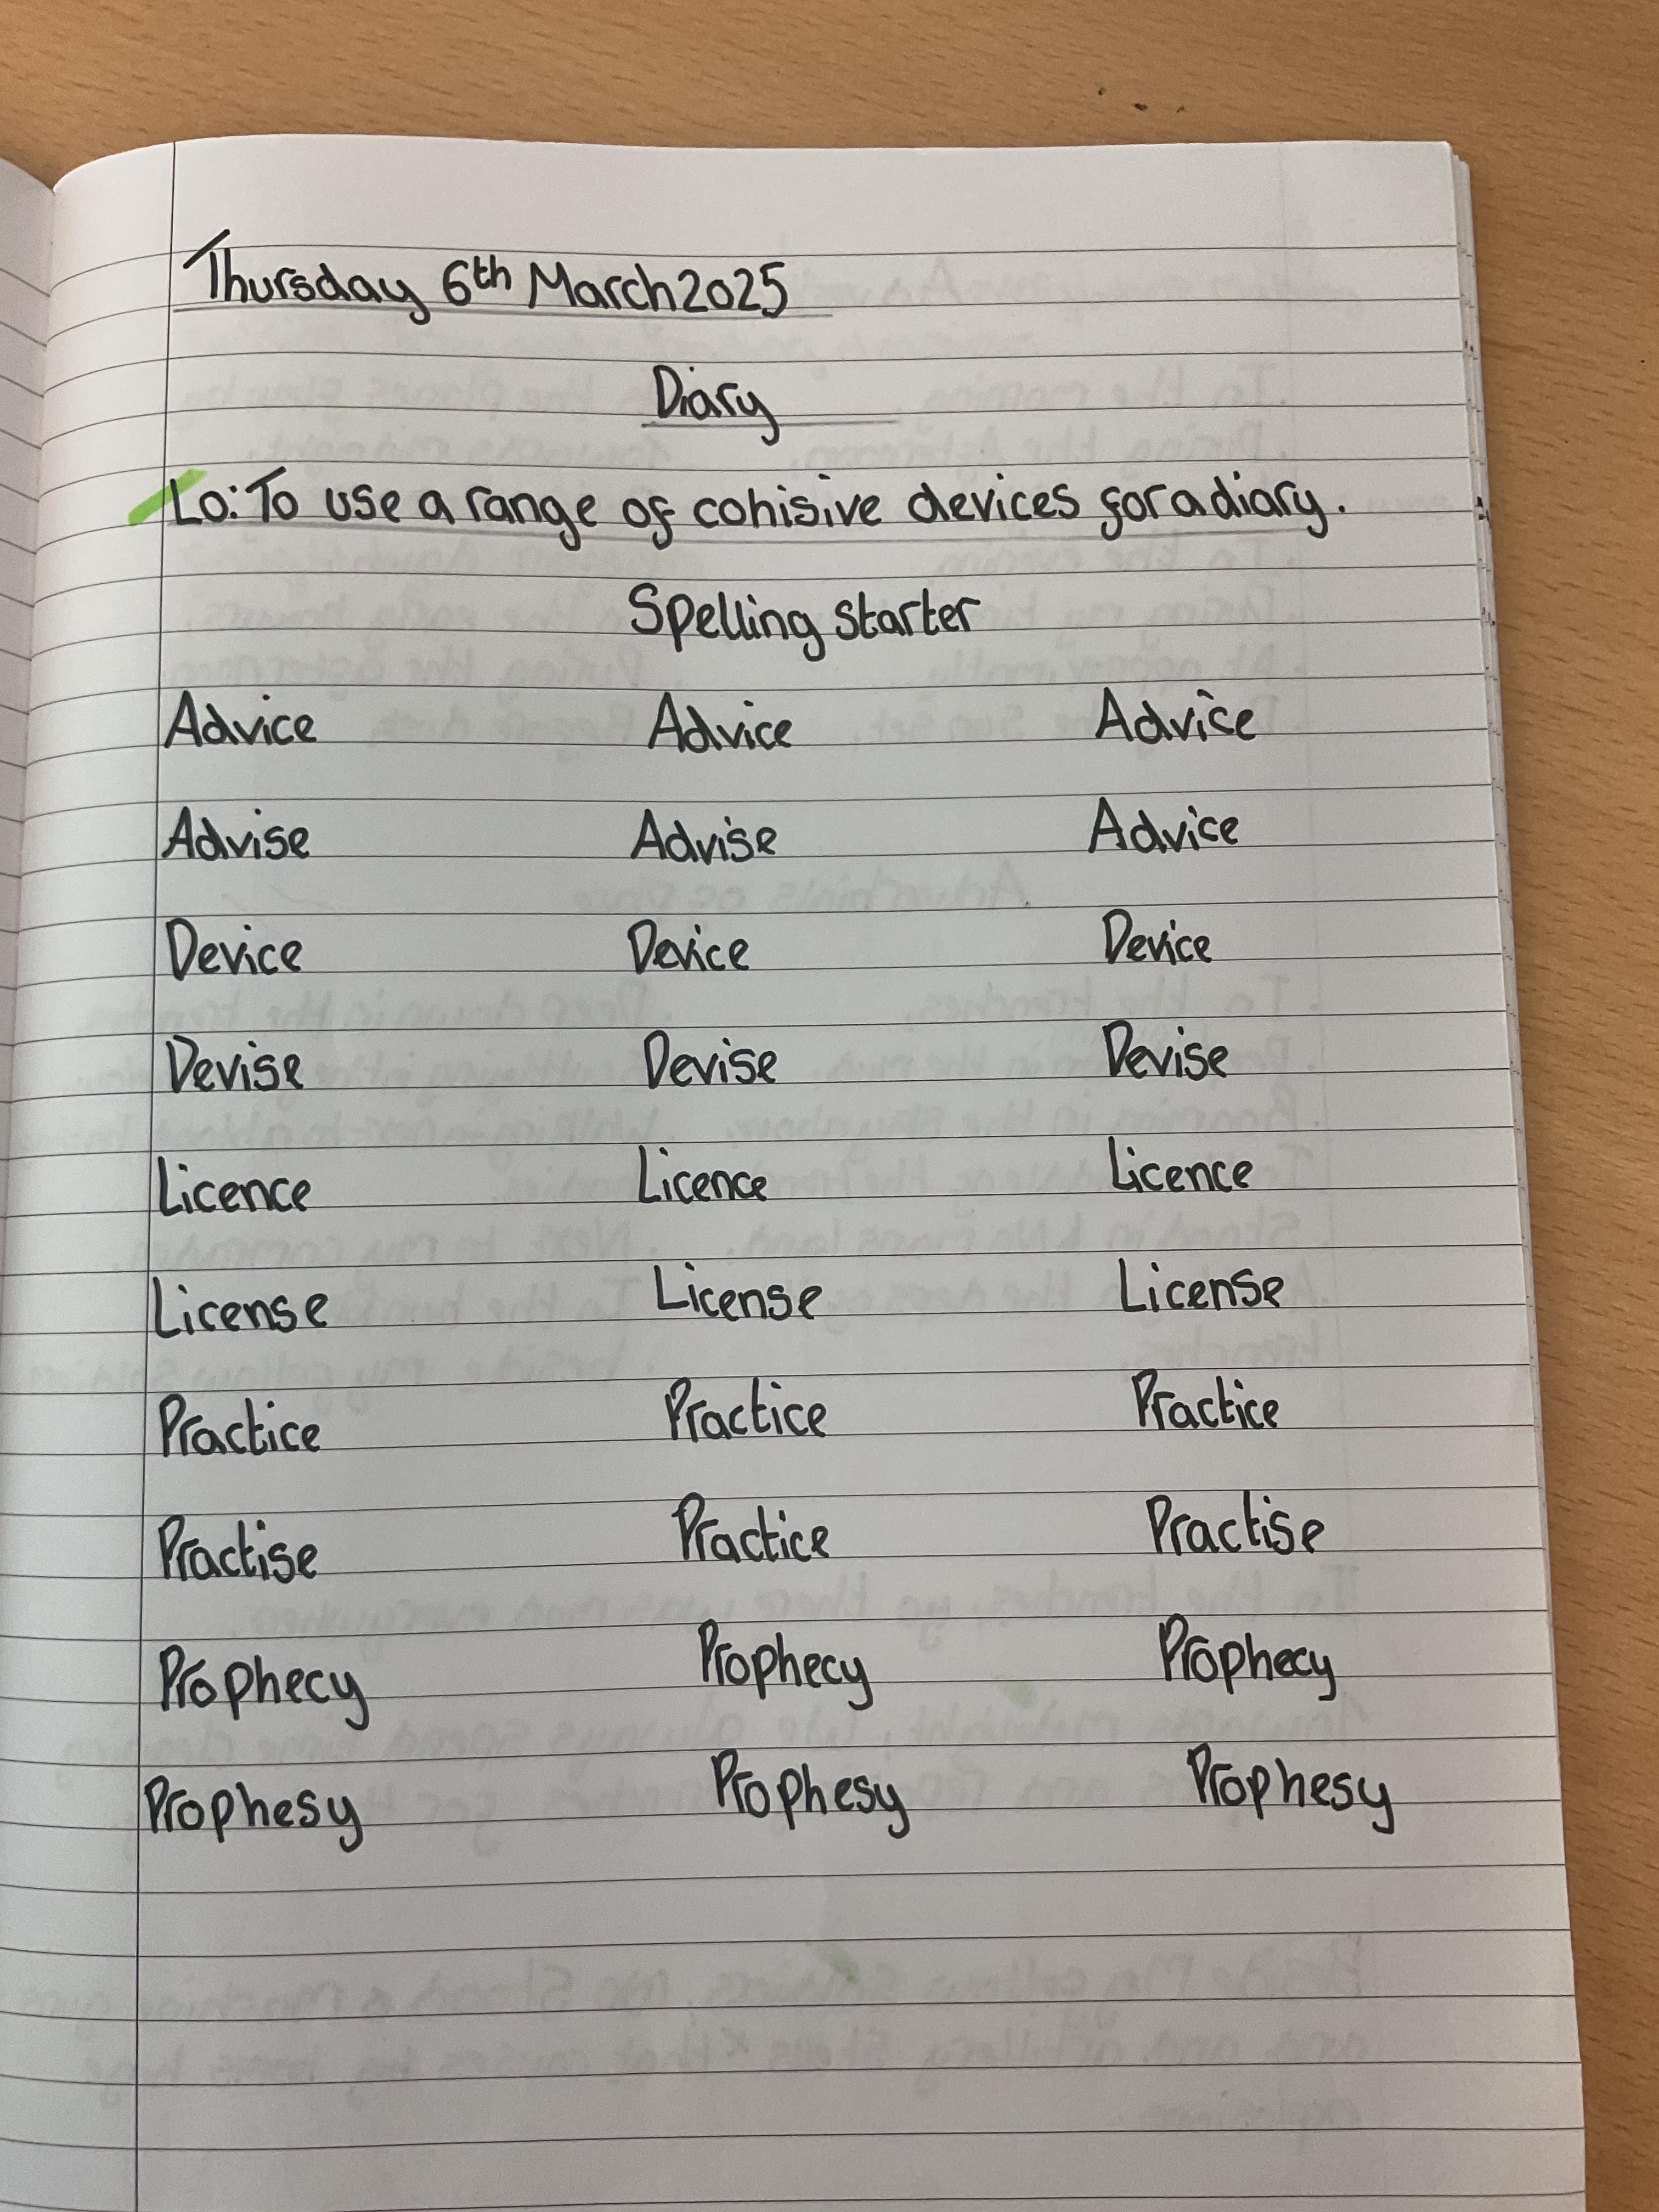 Thursday 6th March 2025
Diary
Lo: To use a range of cohisive devices for a diary.
Spelling starter
Advice Advice Advice
Advise Advise Advice
Device Device Device
Devise Devise Devise
Licence Licence Licence
License License License
Practice Practice Practice
Practise Practice Practise
Prophecy Prophecy Prophecy
Prophesy Prophesy Prophesy